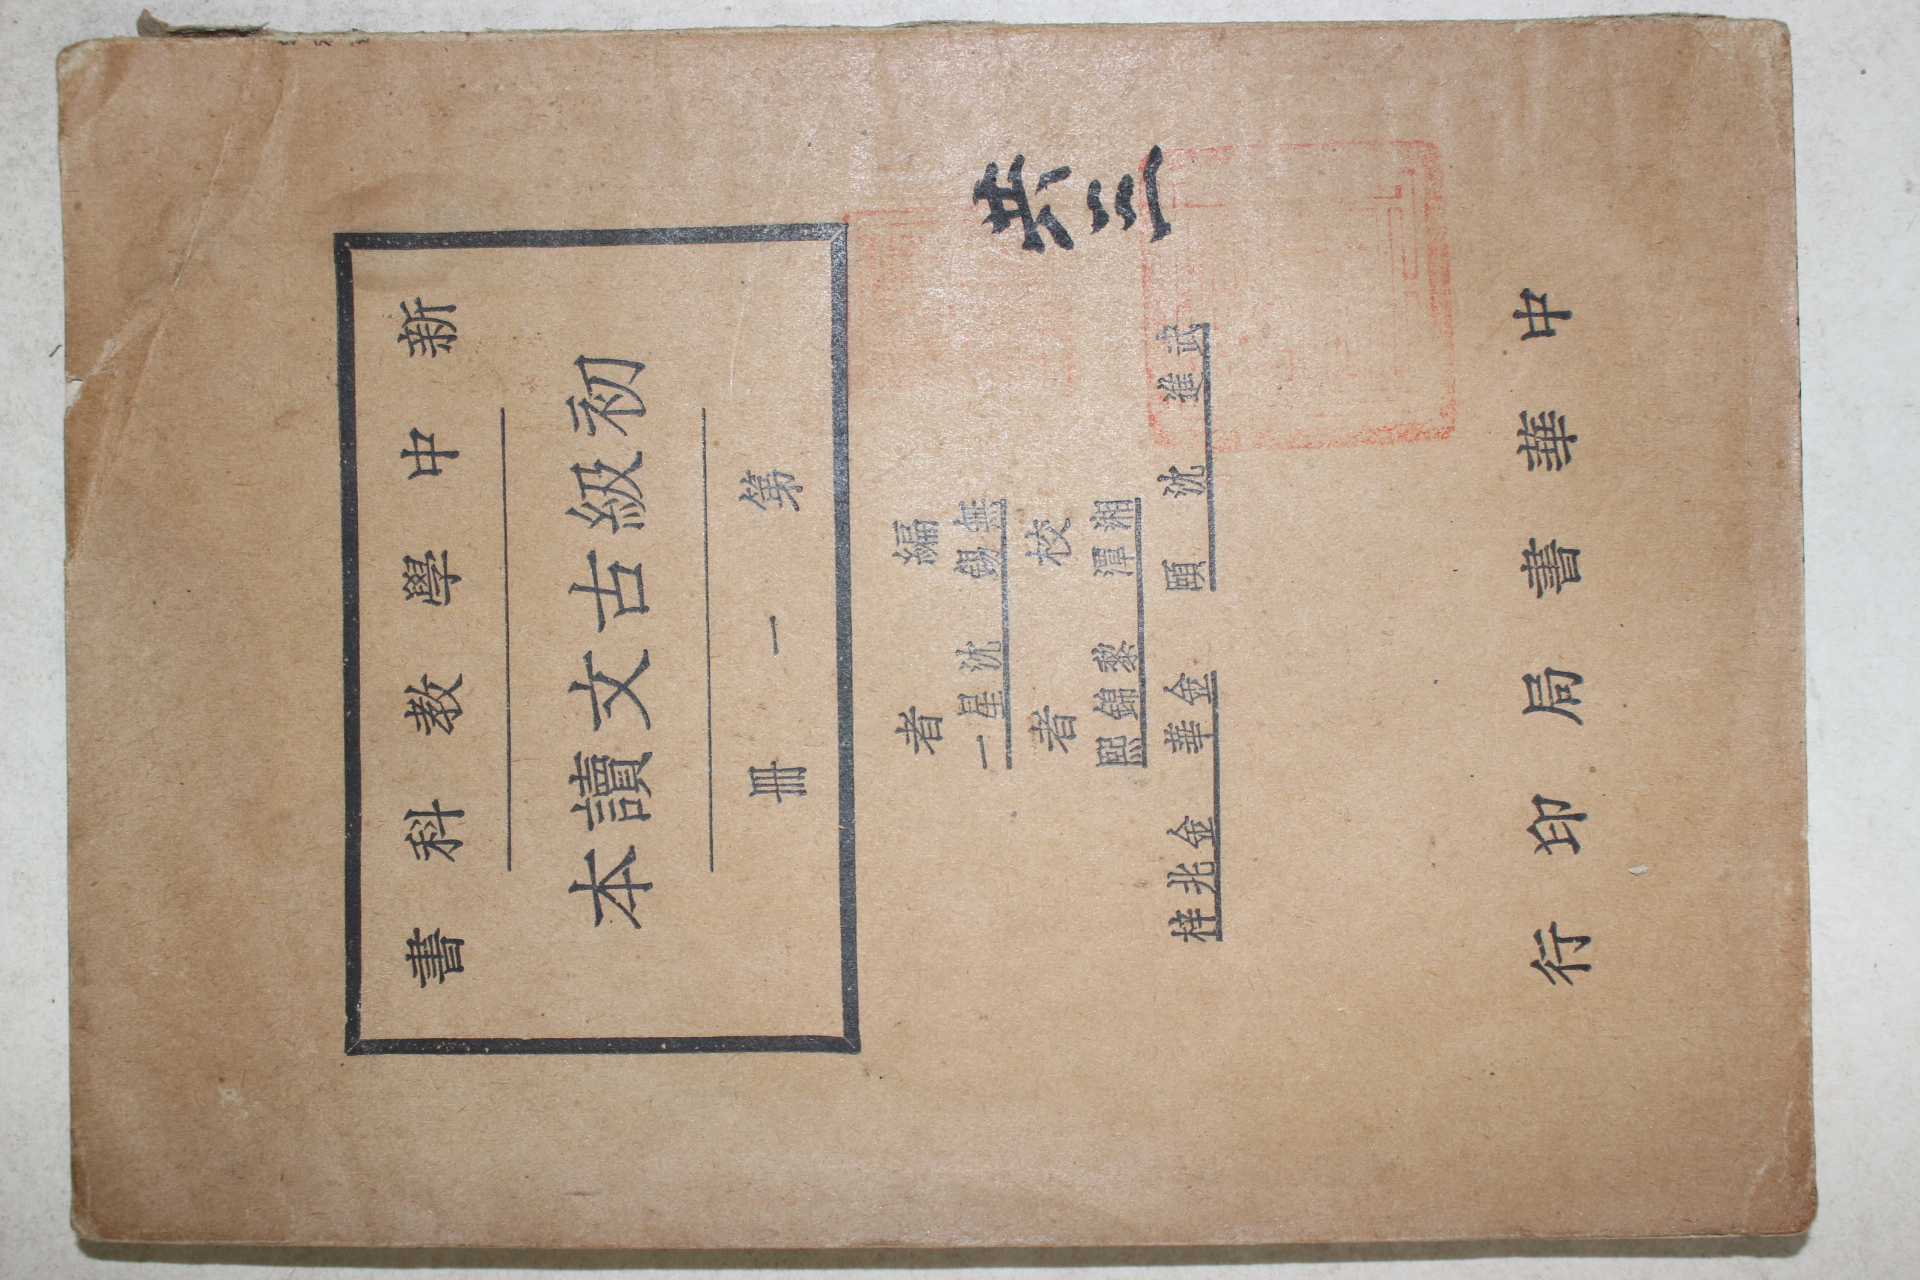 新中學教科書
初級古文讀本
第一冊
編者
無錫沈星一
共三
校者
湘潭黎錦熙
武進沈頤 金華金兆梓
中華書局印行